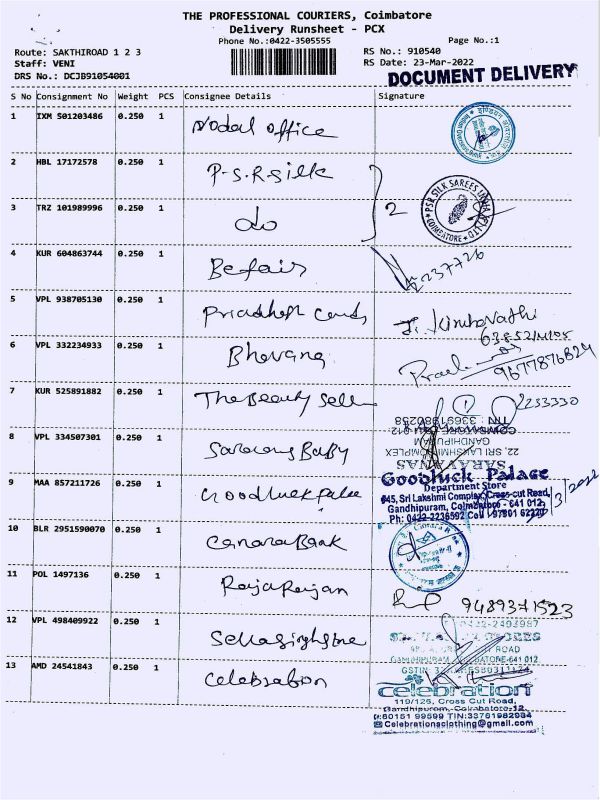 THE PROFESSIONAL COURIERS, Coimbatore
Delivery Runsheet - PCX
Phone No.:0422-3505555
Page No.:1
Route: SAKTHIROAD 1 2 3
RS No.: 910540
Staff: VENI
RS Date: 23-Mar-2022
DRS No.: DCJB91054001
DOCUMENT DELIVERY
S No Consignment No Weight PCS Consignee Details Signature
1 IXM 501203486 0.250 1 Nodal office
2 HBL 17172578 0.250 1 P.S.R silk
2
PSR SILK SAREES INDIA
COIMBATORE
3 TRZ 101989996 0.250 1 do
4 KUR 604863744 0.250 1 Befair 237726
5 VPL 938705130 0.250 1 Priadhep cards
6 VPL 332234933 0.250 1 Bhavana
9677876824
7 KUR 525891882 0.250 1 The Beauty Sell
2253330
TIN : 33691980258
COIMBATORE - 641 012
GANDHIPURAM
22, SRI LAKSHMI COMPLEX
SARAVANAS
8 VPL 334507301 0.250 1 Baby
9 MAA 857211726 0.250 1 Goodluck palace
Goodluck Palace
Department Store
645, Sri Lakshmi Complex, Cross-cut Road,
Gandhipuram, Coimbatore - 641 012,
Ph: 0422-2236592
10 BLR 2951590070 0.250 1 Canara Bank
11 POL 1497136 0.250 1 RajaRajan 9489371523
12 VPL 498409922 0.250 1
0422-2493987
ROAD
GANDHIPURAM COIMBATORE-641 012
GSTIN: 33
13 AMD 24541843 0.250 1 Celebration
celebration
119/126, Cross Cut Road,
Gandhipuram, Coimbatore-12.
60151 99599 TIN:33761982984
Celebrationsclothing@gmail.com